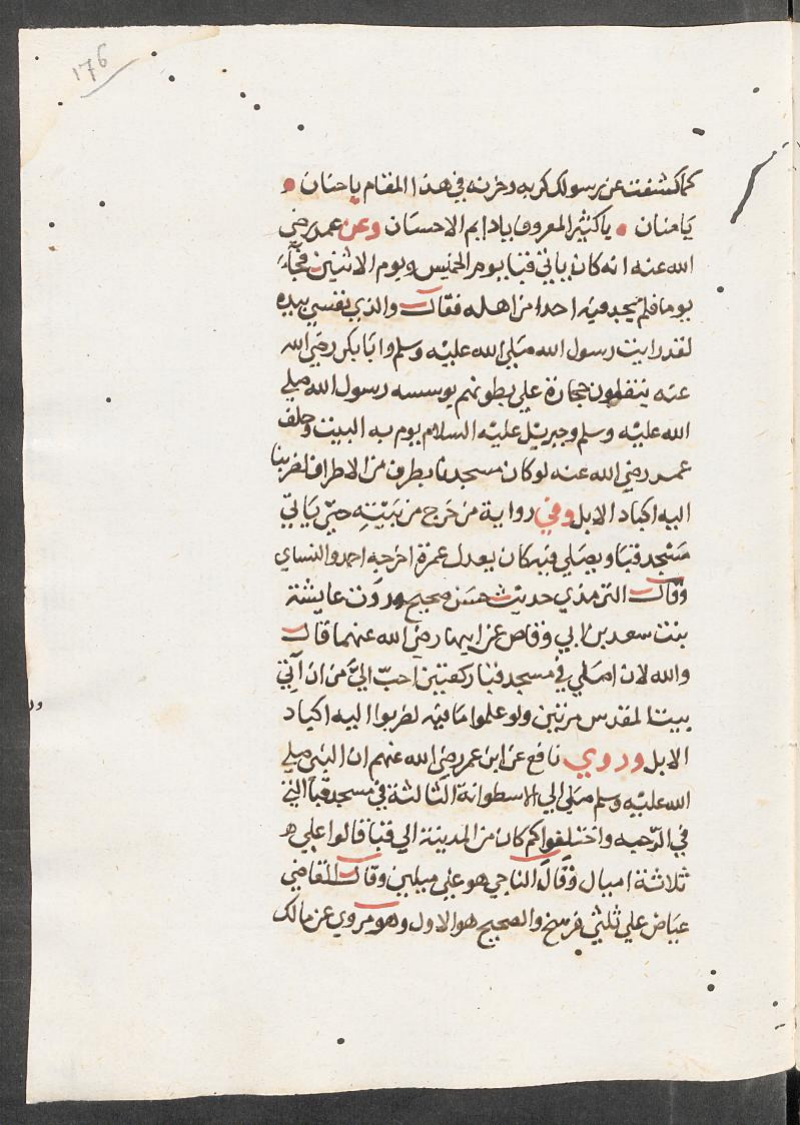 ١٧٦
كما كشفت عن رسولك كربه وحزنه في هذا المقام يا حنان
يا منان يا كثير المعروف يا دايم الاحسان وعن عمر رضي
الله عنه انه كان ياتي قبا يوم الخميس ويوم الاثنين فجآء
يوما فلم يجد فيه احدا من اهله فقال والذي نفسي بيده
لقد رايت رسول الله صلي الله عليه وسلم وابا بكر رضي الله
عنه ينقلون حجارة علي بطونهم يوسسه رسول الله صلي
الله عليه وسلم وجبريل عليه السلام يوم به البيت وحلف
عمر رضي الله عنه لو كان مسجدنا بطرف من الاطراف لضربنا
اليه اكباد الابل وفي رواية من خرج من بيته حتي ياتي
مسجد قبا ويصلي فيه كان يعدل عمرة اخرجه احمد والنساي
وقال الترمذي حديث حسن صحيح وروت عايشة
بنت سعد بن ابي وقاص عن ابيها رضي الله عنهما قال
والله لان اصلي في مسجد قبا ركعتين احب الي من ان آتي
بيت المقدس مرتين ولو علموا ما فيه لضربوا اليه اكباد
الابل وروي نافع عن ابن عمر رضي الله عنهم ان النبي صلي
الله عليه وسلم صلي الي الاسطوانة الثالثة في مسجد قبا التي
في الرحبه واختلفوا كم كان من المدينة الي قبا قالوا علي
ثلاثة اميال وقال الباجي هو علي ميلين وقال القاضي
عياض علي ثلثي فرسخ والصحيح هو الاول وهو مروي عن مالك